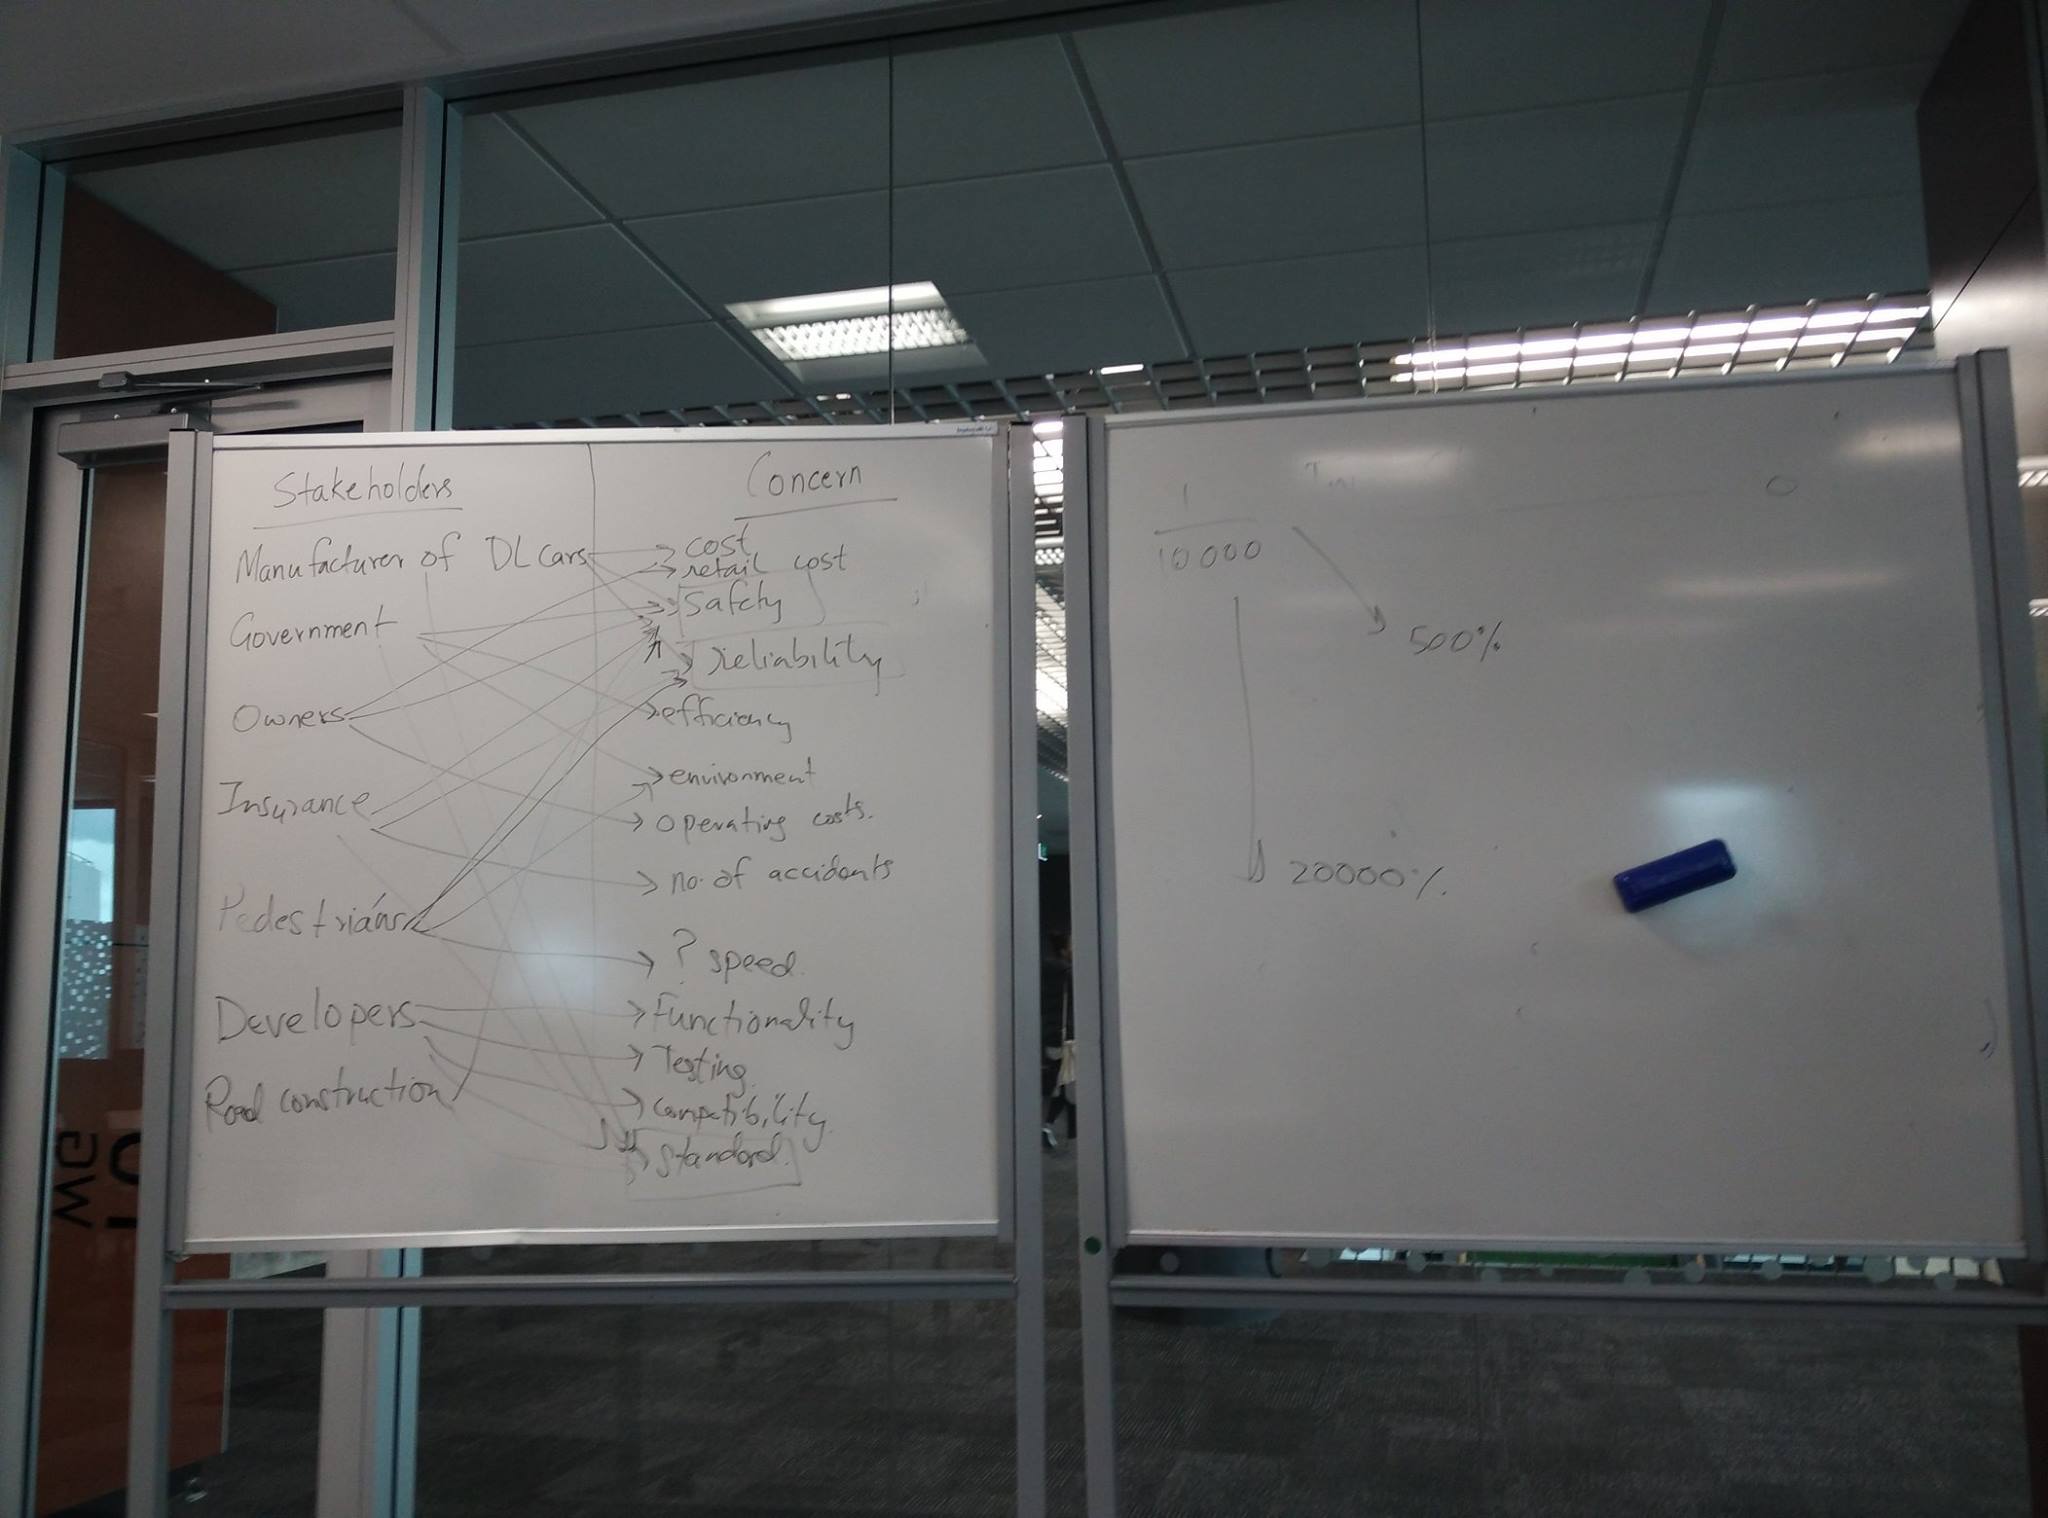 Stakeholders
Manufacturer of DL cars
Government
Owners
Insurance
Pedestrians
Developers
Road construction
Concern
cost
retail cost
safety
reliability
efficiency
environment
operating costs.
no. of accidents
? speed.
Functionality
Testing
compatibility
standard.
1
10000
500%
20000%